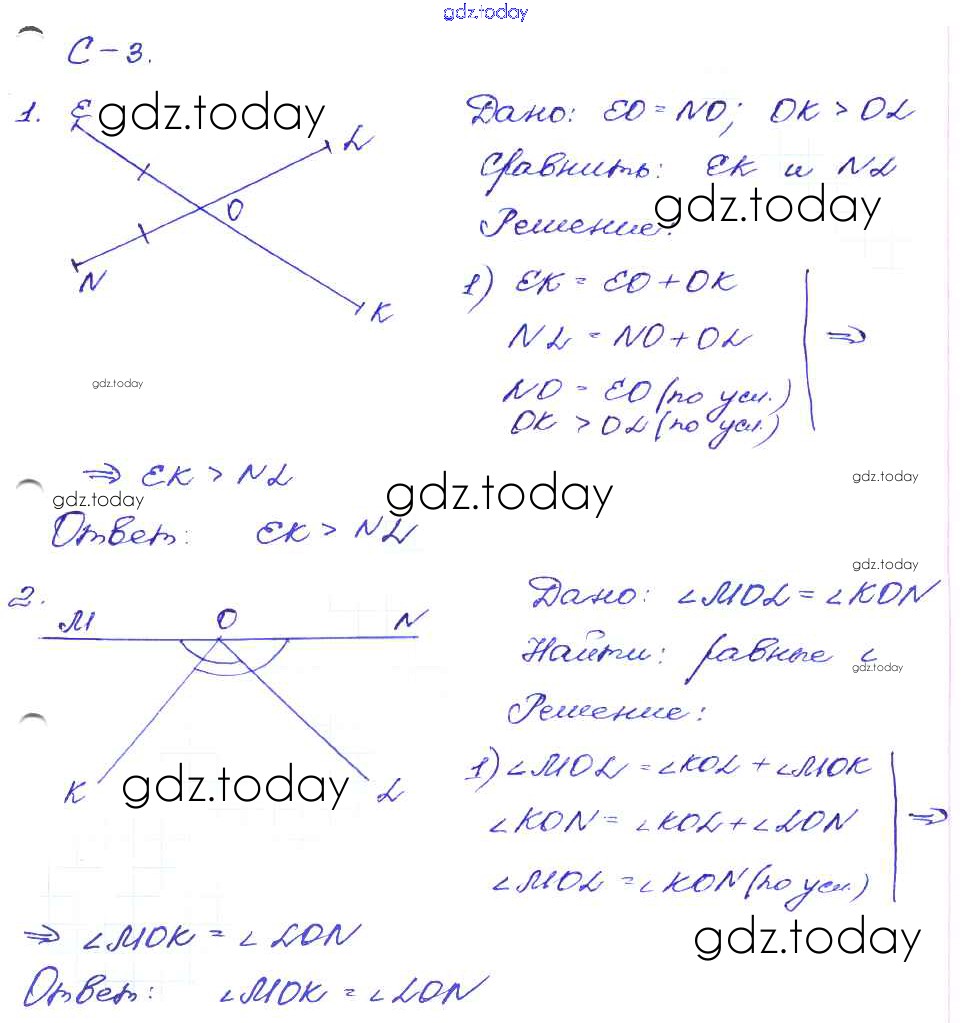 gdz.today
С-3.
1. E gdz.today L O N K
Дано: EO = NO; OK > OL
Сравнить: EK и NL
gdz.today
Решение:
1) EK = EO + OK
NL = NO + OL ⇒
gdz.today
NO = EO (по усл.)
OK > OL (по усл.)
⇒ EK > NL
gdz.today
gdz.today
gdz.today
Ответ: EK > NL
gdz.today
2. M O N K L
Дано: ∠MOL = ∠KON
Найти: равные ∠
gdz.today
Решение:
gdz.today
1) ∠MOL = ∠KOL + ∠MOK
∠KON = ∠KOL + ∠LON ⇒
∠MOL = ∠KON (по усл.)
gdz.today
⇒ ∠MOK = ∠LON
Ответ: ∠MOK = ∠LON